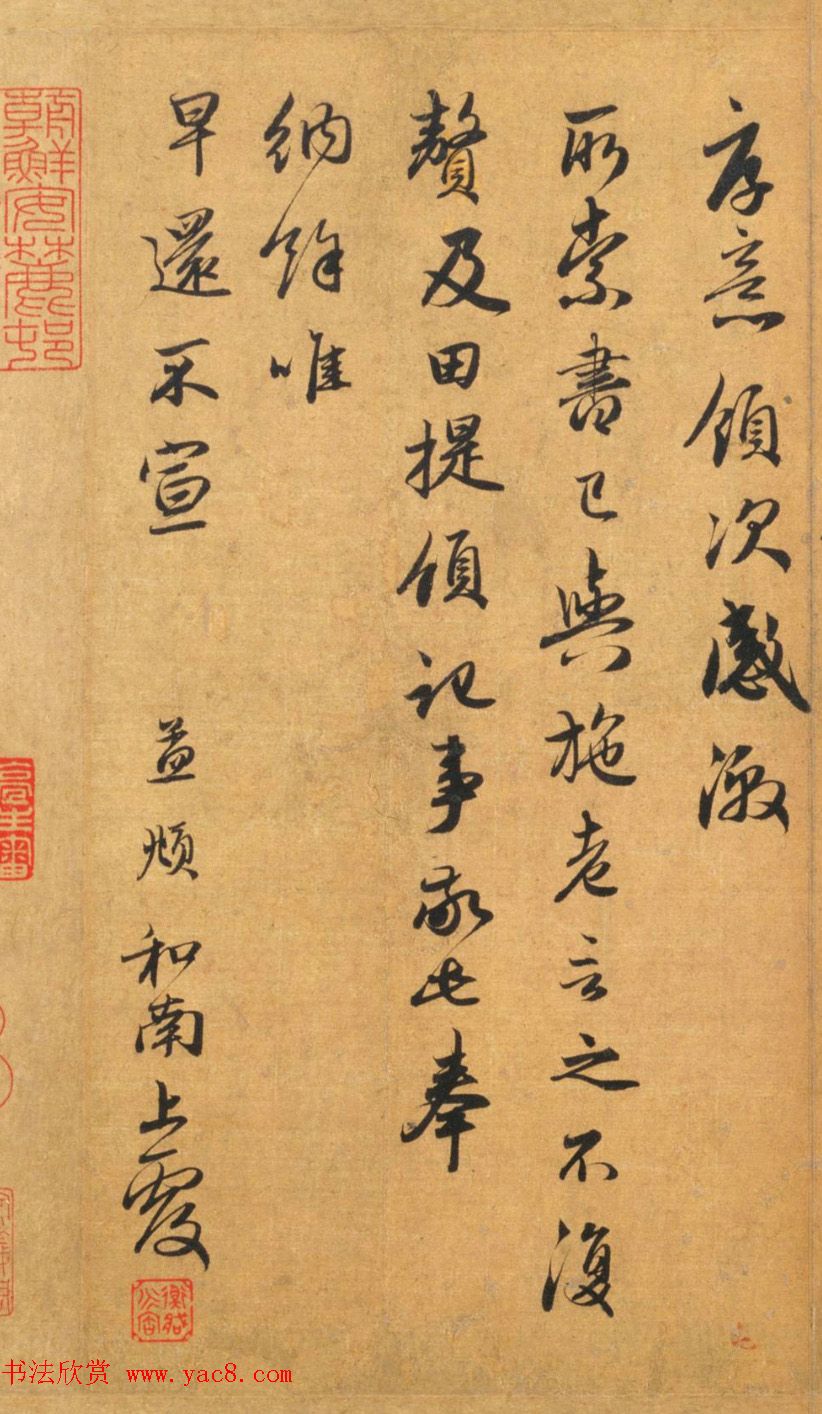 厚意領次感激
所索書已與施老言之不復
贅及田提領記事敬此奉
納餘唯
早還不宣 孟頫和南上覆
朝鮮安麓邨
书法欣赏 www.yac8.com